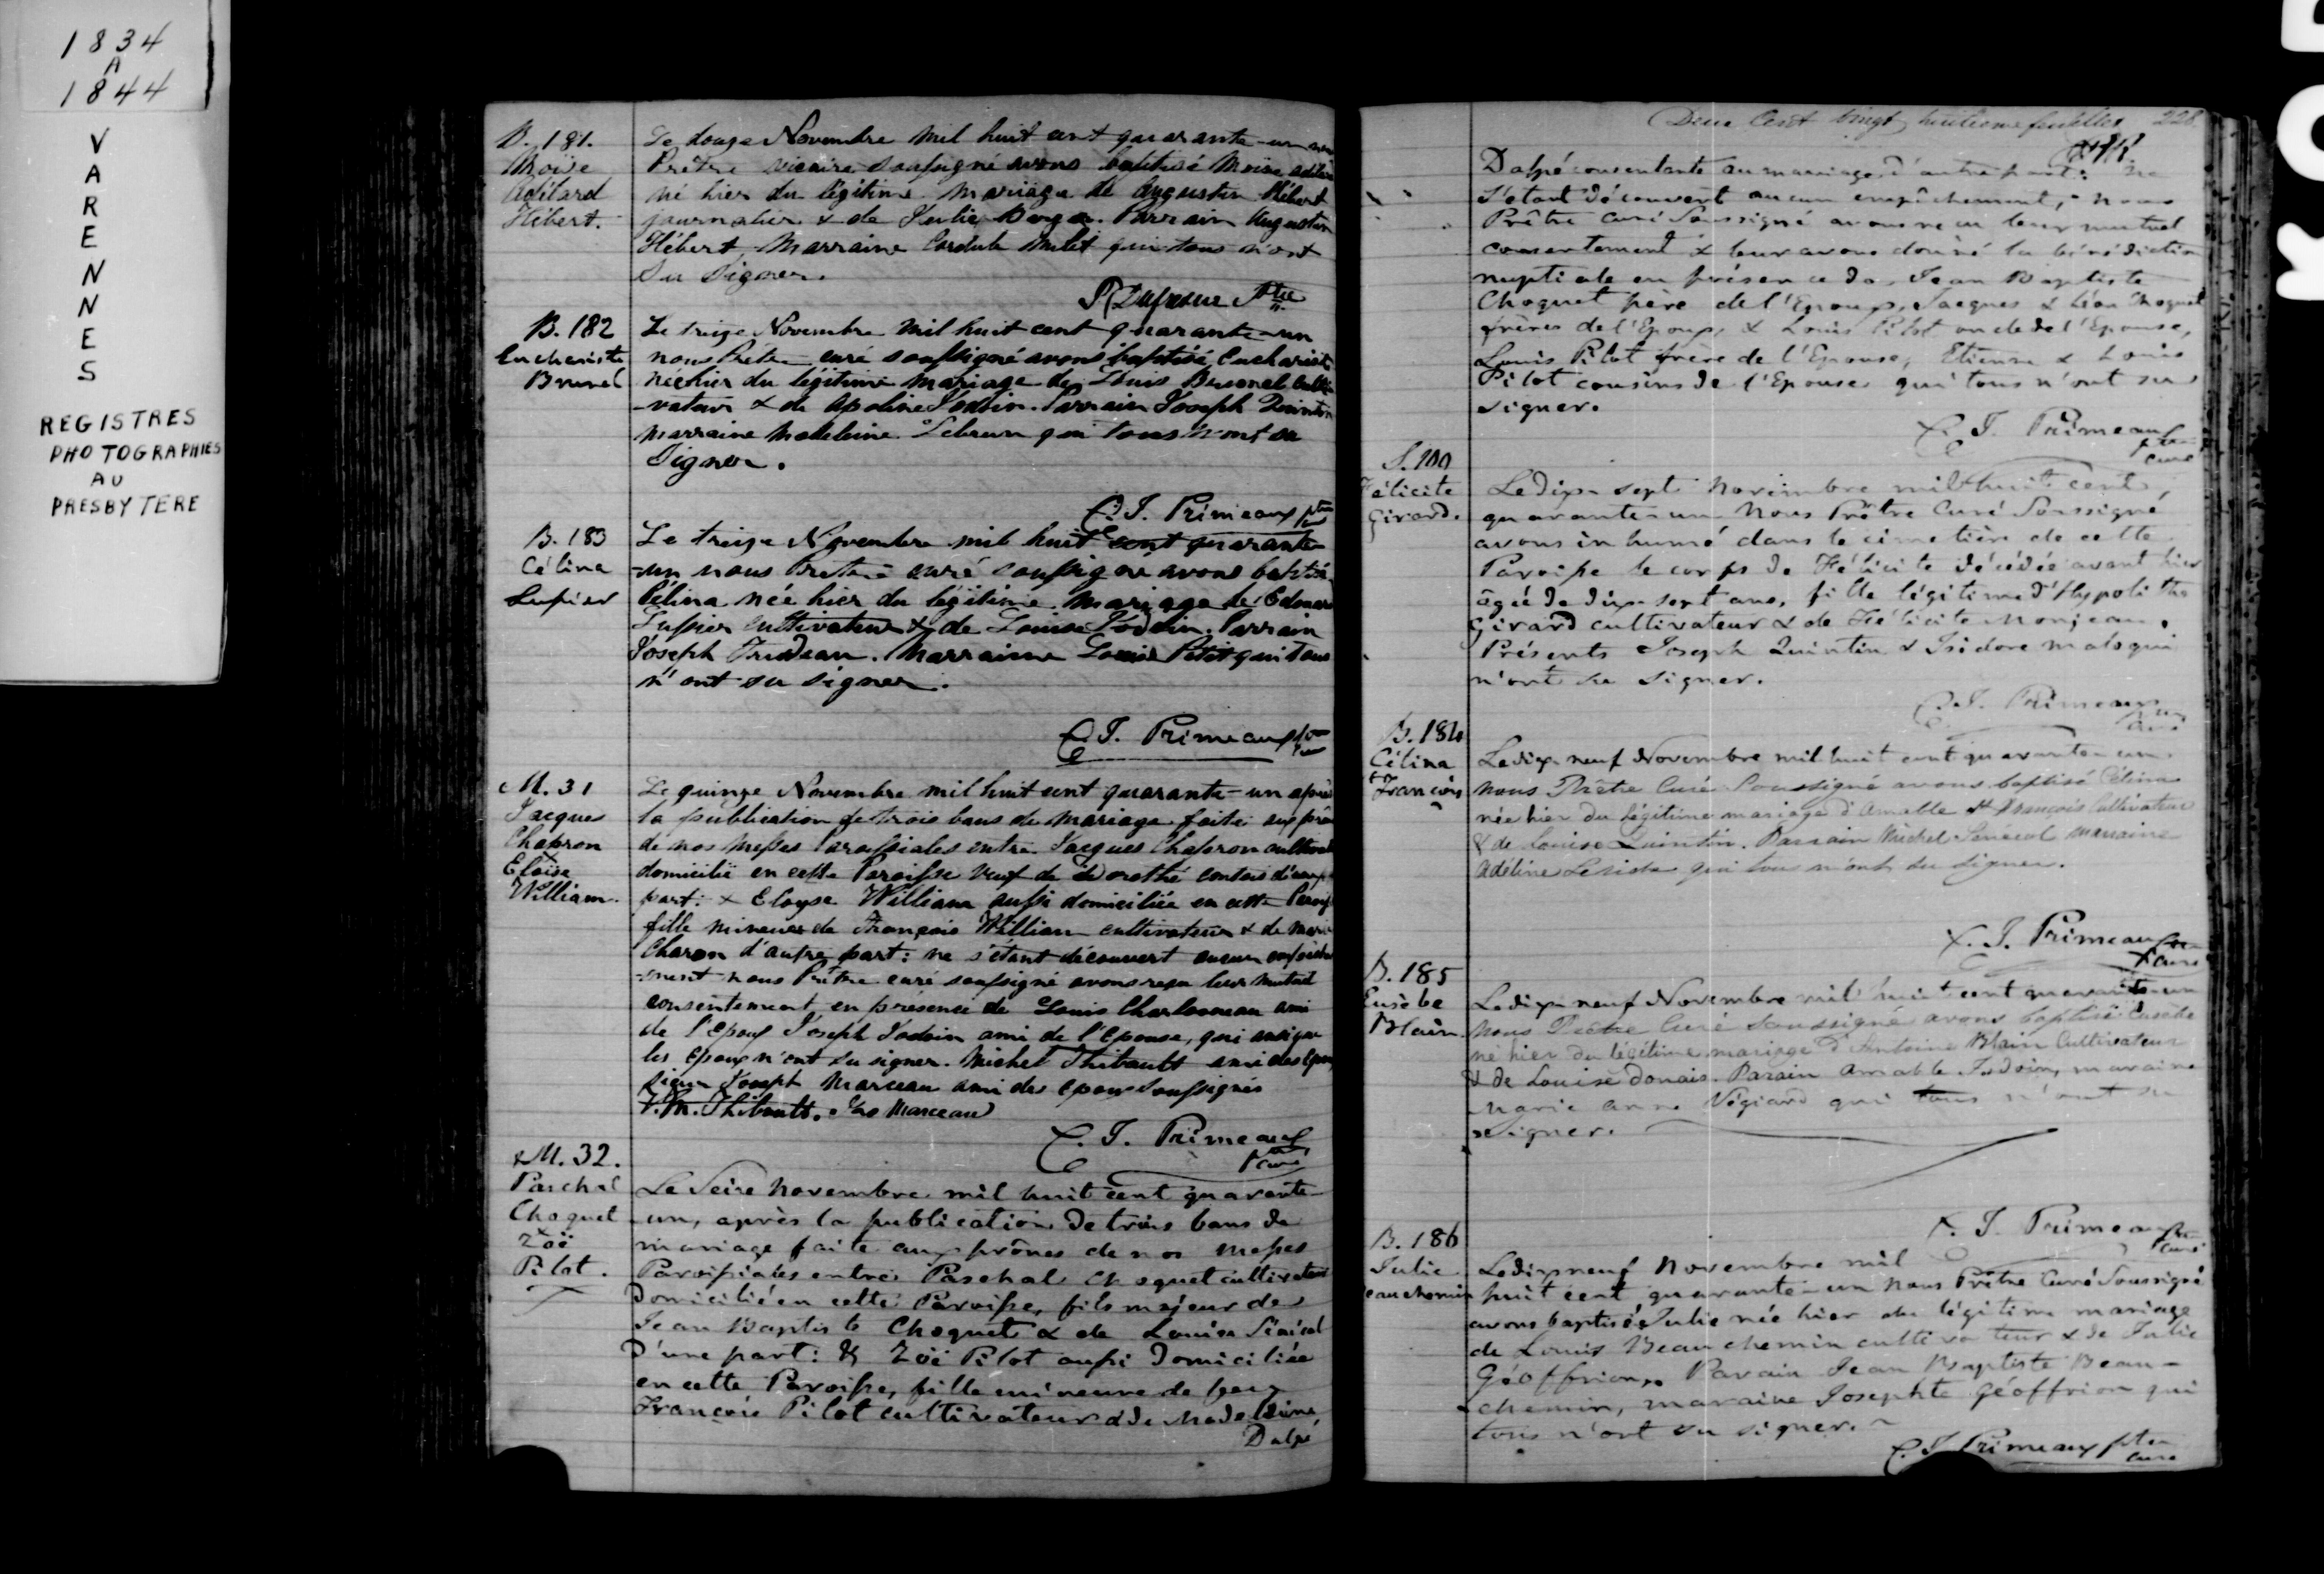 1834
A
1844
VARENNES
REGISTRES
PHOTOGRAPHIES
AU
PRESBYTERE
B. 181.
Moïse
Adélard
Hébert.
Le douze Novembre mil huit cent quarante-un nous
Prêtre vicaire soussigné avons baptisé Moïse
né hier du légitime mariage de Augustin Hébert
journalier & de Julie Parrain Augustin
Hébert, Marraine Cordule qui tous n'ont
su signer.
B. 182
Euchariste
Brunel
Le treize Novembre mil huit cent quarante-un
nous Prêtre curé soussigné avons baptisé Euchariste
né hier du légitime mariage de Louis Brunel culti
-vateur & de Apoline Jodoin. Parrain Joseph Quintin
marraine Madeleine Lebrun qui tous n'ont su
signer.
C. J. Primeaux ptre
B. 183
Célina
Lussier
Le treize Novembre mil huit cent quarante
-un nous Prêtre curé soussigné avons baptisé
Célina née hier du légitime mariage de Edouard
Lussier cultivateur & de Louise Jodoin. Parrain
Joseph Trudeau. Marraine Louise Petit qui tous
n'ont su signer.
C. J. Primeaux ptre
M. 31
Jacques
Chapron
&
Eloïse
William.
Le quinze Novembre mil huit cent quarante-un après
la publication de trois bans de mariage faite aux prô
de nos Messes Paroissiales entre Jacques Chapron
domicilié en cette Paroisse veuf de Dorothé d'une
part: & Eloyse William aussi domiciliée en cette Parois
fille mineure de François William cultivateur & de Marie
Charon d'autre part: ne s'étant découvert aucun empêche
-ment nous Prêtre curé soussigné avons reçu leur mutuel
consentement en présence de Louis Charbonneau ami
de l'Epoux Joseph Jodoin ami de l'Epouse, qui ainsi que
les époux n'ont su signer. Michel Thibault ami des
Joseph Marceau ami des époux soussignés
J. M. Thibault. Marceau
C. J. Primeaux
ptre curé
M. 32.
Paschal
Choquet
&
Zoë
Pilot.
Le Seize Novembre mil huit cent quarante
-un, après la publication de trois bans de
mariage faite aux prônes de nos messes
Paroissiales entre Paschal Choquet cultivateur
Domicilié en cette Paroisse, fils majeur de
Jean Baptiste Choquet & de Louise Sénécal
D'une part: & Zoë Pilot aussi Domiciliée
en cette Paroisse, fille mineure de
François Pilot cultivateur & de Madeleine
Dalpé
Deux Cent vingt huitième feuillet 228
Dalpé consentante au mariage d'autre part: ne
s'étant découvert aucun empêchement, nous
Prêtre Curé Soussigné avons reçu leur mutuel
consentement & leur avons donné la bénédiction
nuptiale en présence de Jean Baptiste
Choquet père de l'Epoux, Jacques & Léon Choquet
frères de l'Epoux, & Louis Pilot oncle de l'Epouse,
Louis Pilot frère de l'Epouse, Etienne & Louis
Pilot cousins de l'Epouse qui tous n'ont su
signer.
C. J. Primeaux
ptre curé
S. 100
Félicite
Girard.
Le dix-sept Novembre mil huit cent
quarante-un Nous Prêtre Curé Soussigné
avons inhumé dans le cimetière de cette
Paroisse le corps de Félicite décédée avant hier
âgée de dix-sept ans, fille légitime d'Hypolithe
Girard cultivateur & de Félicite Monjeau.
Présents Joseph Quintin & Isidore Malo qui
n'ont su signer.
C. J. Primeaux
ptre curé
B. 184
Célina
St François
Le dix-neuf Novembre mil huit cent quarante-un
nous Prêtre Curé Soussigné avons baptisé Célina
née hier du légitime mariage d'Amable St François Cultivateur
& de Louise Quintin. Parrain Michel Sénécal marraine
Adéline qui tous n'ont su signer.
C. J. Primeaux ptre
curé
B. 185
Eusèbe
Blain
Le dix-neuf Novembre mil huit cent quarante-un
nous Prêtre Curé Soussigné avons baptisé Eusèbe
né hier du légitime mariage d'Antoine Blain Cultivateur
& de Louise Donais. Parain Amable Jodoin, maraine
Marie Anne qui tous n'ont su
signer.
C. J. Primeaux ptre
curé
B. 186
Julie
eauchemin
Le dix-neuf Novembre mil
huit cent quarante-un Nous Prêtre Curé Soussigné
avons baptisé Julie née hier du légitime mariage
de Louis Beauchemin cultivateur & de Julie
Géoffrion. Parain Jean Baptiste Beau-
chemin, maraine Josephte Géoffrion qui
tous n'ont su signer.
C. J. Primeaux ptre
curé